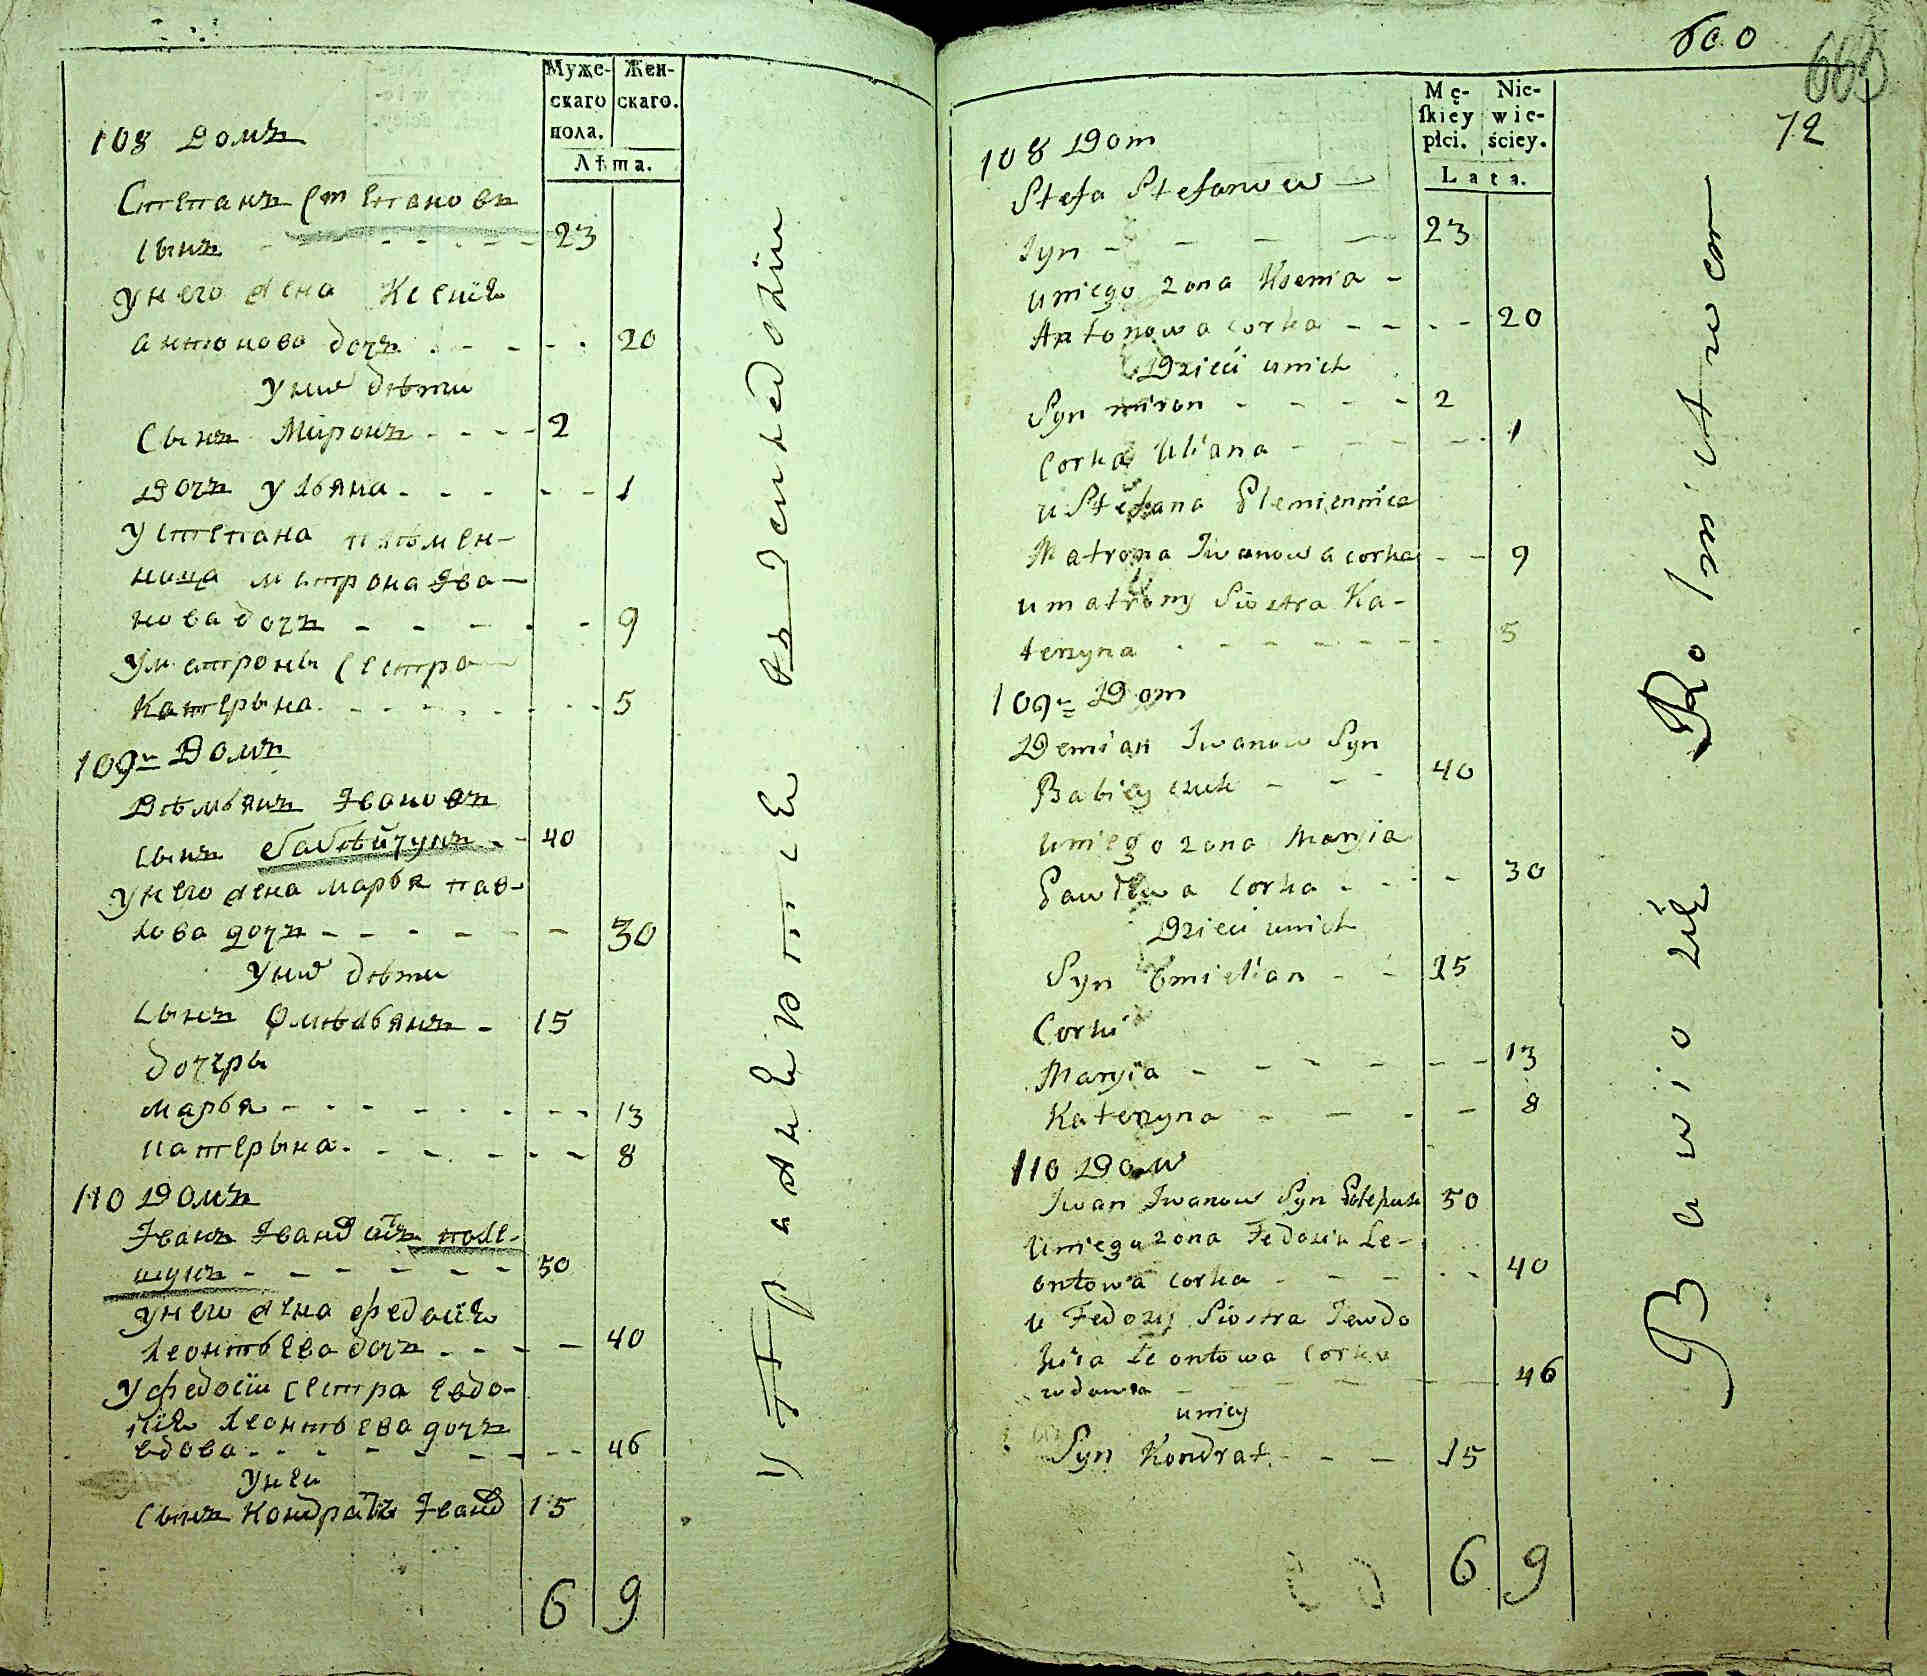 Муже-
скаго
пола.
Жен-
скаго.
Лѣта.
108 Домъ
Степанъ Степановъ
сынъ - - - - - - - 23
у него жена Ксенія
антонова дочъ - - - - 20
у ниⷯ дѣти
Сынъ Миронъ - - - - 2
Дочъ ульяна - - - - - 1
у степана племѣн-
ница матрона Ива-
нова дочъ - - - - - 9
у матроны сестра
Катерына - - - - - - 5
109ᵗ Домъ
Дѣмьянъ Івановъ
сынъ бабѣйчукъ - - 40
у него жена марья пав-
лова дочъ - - - - - 30
у ниⷯ дѣти
сынъ Омѣльянъ - 15
дочеры
марья - - - - - - - 13
катерына - - - - - - 8
110 Домъ
Іванъ Івановъ поле-
шукъ - - - - - - 50
у него жена федосія
леонтьева дочъ - - - - 40
у федосіи сестра Евдо-
леонтьева дочъ
вдова - - - - - - - 46
у неи
сынъ Кондратъ Іванов 15
6 9
упражняется въ земледѣліи
600
660
72
Mę-
ſkiey
płci.
Nie-
wie-
ściey.
Lata.
108 Dom
Stefa Stefanow
Syn - - - - 23
u niego zona Ksenia -
Antonowa corka - - - - 20
Dzieci u nich
Syn miron - - - - 2
Corka Uliana - - - - 1
u Stefana Plemiennica
Matrona Iwanowa corka - - 9
u matrony Siostra Ka-
terzyna - - - - - - - 5
109 Dom
Demian Iwanow Syn
Babieyczuk - - - 40
u niego zona Maryia
Pawłowa corka - - - - 30
Dzieci u nich
Syn Omielian - - 15
Corki
Maryia - - - - - - 13
Katerzyna - - - - 8
110 Dom
Iwan Iwanow Syn Poleszuk 50
u niego zona Fedosia Le-
ontowa corka - - - - - 40
u Fedosy Siostra Jewdo
Leontowa Corka
wdowa - - - - - 46
u niey
Syn Kondrat - - - 15
6 9
Bawi się Rolnictwem